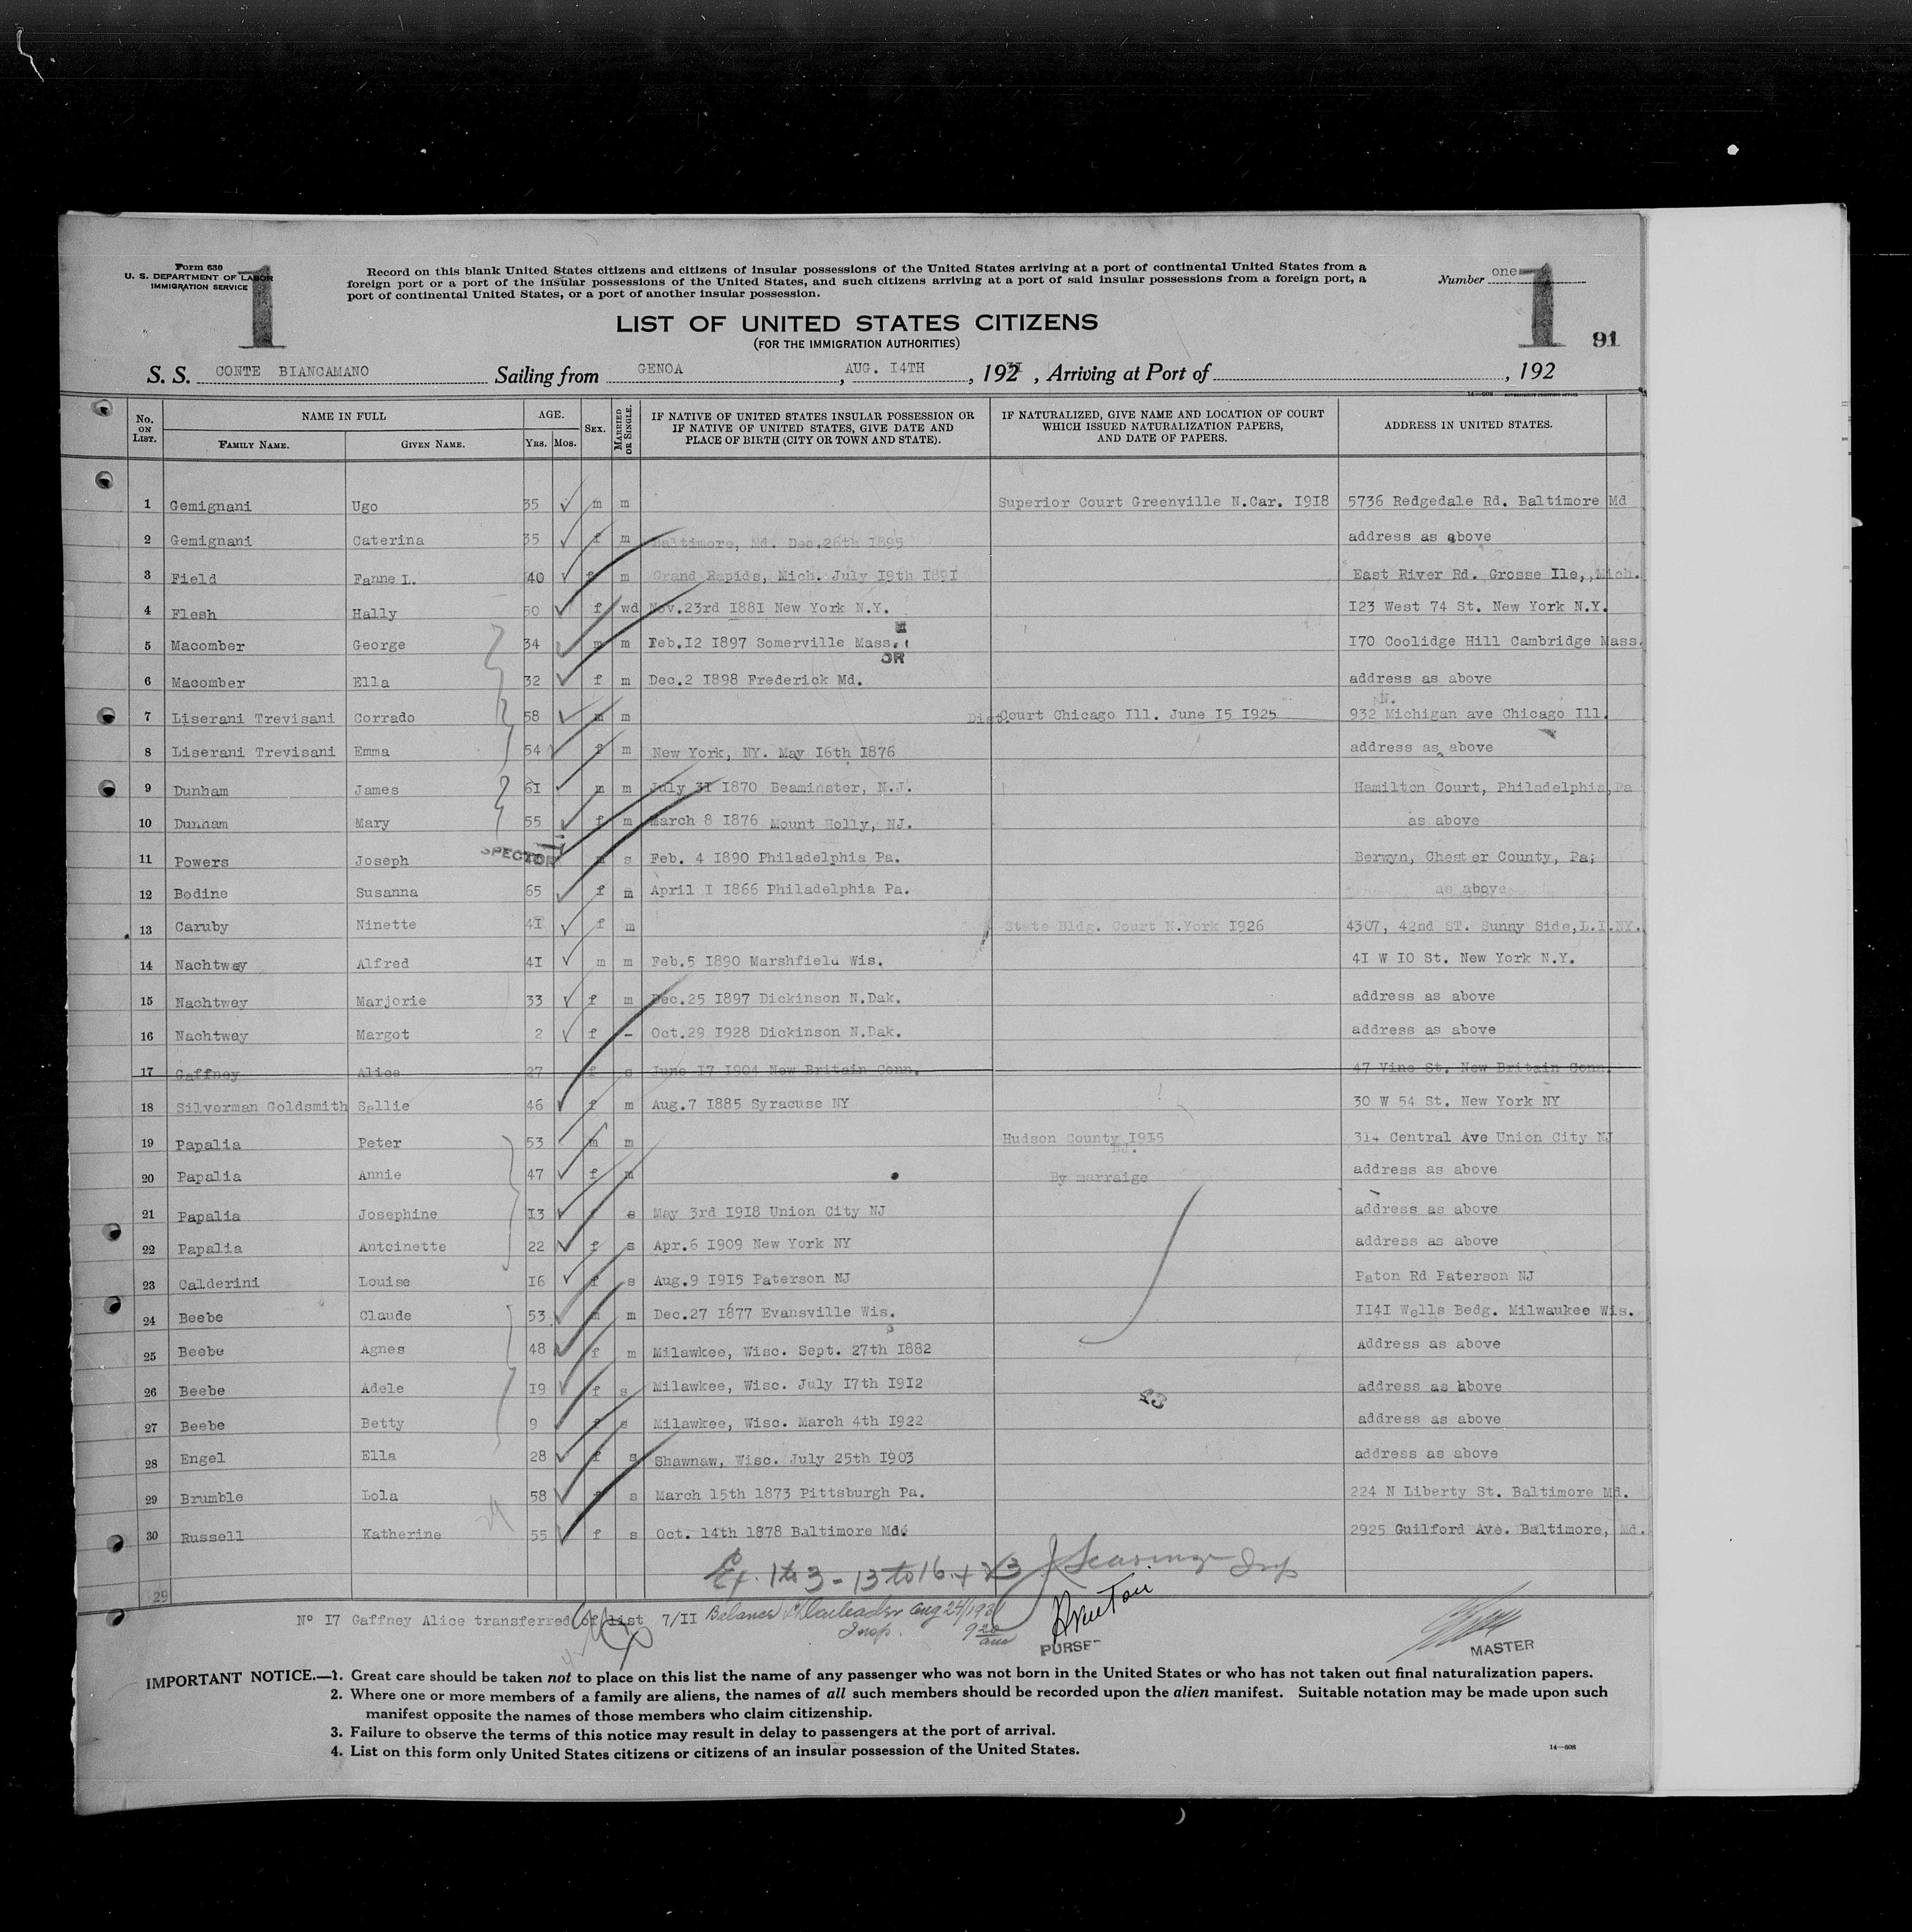 Form 630
U. S. DEPARTMENT OF LABOR
IMMIGRATION SERVICE
1
Record on this blank United States citizens and citizens of insular possessions of the United States arriving at a port of continental United States from a
foreign port or a port of the insular possessions of the United States, and such citizens arriving at a port of said insular possessions from a foreign port, a
port of continental United States, or a port of another insular possession.
Number one
1
91
LIST OF UNITED STATES CITIZENS
(FOR THE IMMIGRATION AUTHORITIES)
S. S. CONTE BIANCAMANO Sailing from GENOA, AUG. I4TH, 1931, Arriving at Port of , 192
No. ON LIST. NAME IN FULL FAMILY NAME. GIVEN NAME. AGE. YRS. MOS. SEX. MARRIED OR SINGLE. IF NATIVE OF UNITED STATES INSULAR POSSESSION OR IF NATIVE OF UNITED STATES, GIVE DATE AND PLACE OF BIRTH (CITY OR TOWN AND STATE). IF NATURALIZED, GIVE NAME AND LOCATION OF COURT WHICH ISSUED NATURALIZATION PAPERS, AND DATE OF PAPERS. ADDRESS IN UNITED STATES.
1 Gemignani Ugo 35 m m Superior Court Greenville N.Car. I9I8 5736 Redgedale Rd. Baltimore Md
2 Gemignani Caterina 35 f m Baltimore, Md. Dec.26th I895 address as above
3 Field Fanne L. 40 f m Grand Rapids, Mich. July I9th I89I East River Rd. Grosse Ile, Mich.
4 Flesh Hally 50 f wd Nov.23rd I88I New York N.Y. I23 West 74 St. New York N.Y.
5 Macomber George 34 m m Feb.I2 I897 Somerville Mass. I70 Coolidge Hill Cambridge Mass.
OR
6 Macomber Ella 32 f m Dec.2 I898 Frederick Md. address as above
7 Liserani Trevisani Corrado 58 m m Dist.Court Chicago Ill. June I5 I925 932 N. Michigan ave Chicago Ill.
8 Liserani Trevisani Emma 54 f m New York, NY. May I6th I876 address as above
9 Dunham James 6I m m July 3I I870 Beaminster, N.J. Hamilton Court, Philadelphia,Pa
10 Dunham Mary 55 f m March 8 I876 Mount Holly, NJ. as above
SPECTOR
11 Powers Joseph m s Feb. 4 I890 Philadelphia Pa. Berwyn, Chester County, Pa;
12 Bodine Susanna 65 f m April I I866 Philadelphia Pa. as above
13 Caruby Ninette 4I f m State Bldg. Court N.York I926 4307, 42nd ST. Sunny Side,L.I.NY.
14 Nachtwey Alfred 4I m m Feb.5 I890 Marshfield Wis. 4I W IO St. New York N.Y.
15 Nachtwey Marjorie 33 f m Dec.25 I897 Dickinson N.Dak. address as above
16 Nachtwey Margot 2 f - Oct.29 I928 Dickinson N.Dak. address as above
17 Gaffney Alice 27 f s June I7 I904 New Britain Conn. 47 Vine St. New Britain Conn.
18 Silverman Goldsmith Sallie 46 f m Aug.7 I885 Syracuse NY 30 W 54 St. New York NY
19 Papalia Peter 53 m m Hudson County NJ. I9I6 314 Central Ave Union City NJ
20 Papalia Annie 47 f m By marraige address as above
21 Papalia Josephine I3 f s May 3rd I9I8 Union City NJ address as above
22 Papalia Antoinette 22 f s Apr.6 I909 New York NY address as above
23 Calderini Louise I6 f s Aug.9 I9I5 Paterson NJ Paton Rd Paterson NJ
24 Beebe Claude 53 m m Dec.27 I877 Evansville Wis. II4I Wells Bedg. Milwaukee Wis.
25 Beebe Agnes 48 f m Milawkee, Wisc. Sept. 27th I882 Address as above
26 Beebe Adele I9 f s Milawkee, Wisc. July I7th I9I2 address as above
27 Beebe Betty 9 f s Milawkee, Wisc. March 4th I922 address as above
28 Engel Ella 28 f s Shawnaw, Wisc. July 25th I903 address as above
29 Brumble Lola 58 f s March I5th I873 Pittsburgh Pa. 224 N Liberty St. Baltimore Md.
30 Russell Katherine 55 f s Oct. I4th I878 Baltimore Md. 2925 Guilford Ave. Baltimore, Md.
Ex. 1 to 3 - 13 to 16 + 23 Insp
29
Nº I7 Gaffney Alice transferred of list 7/II Balance Aug 24/1931
Insp. 9 20 am
PURSER
MASTER
IMPORTANT NOTICE.—1. Great care should be taken not to place on this list the name of any passenger who was not born in the United States or who has not taken out final naturalization papers.
2. Where one or more members of a family are aliens, the names of all such members should be recorded upon the alien manifest. Suitable notation may be made upon such
manifest opposite the names of those members who claim citizenship.
3. Failure to observe the terms of this notice may result in delay to passengers at the port of arrival.
4. List on this form only United States citizens or citizens of an insular possession of the United States.
14—608